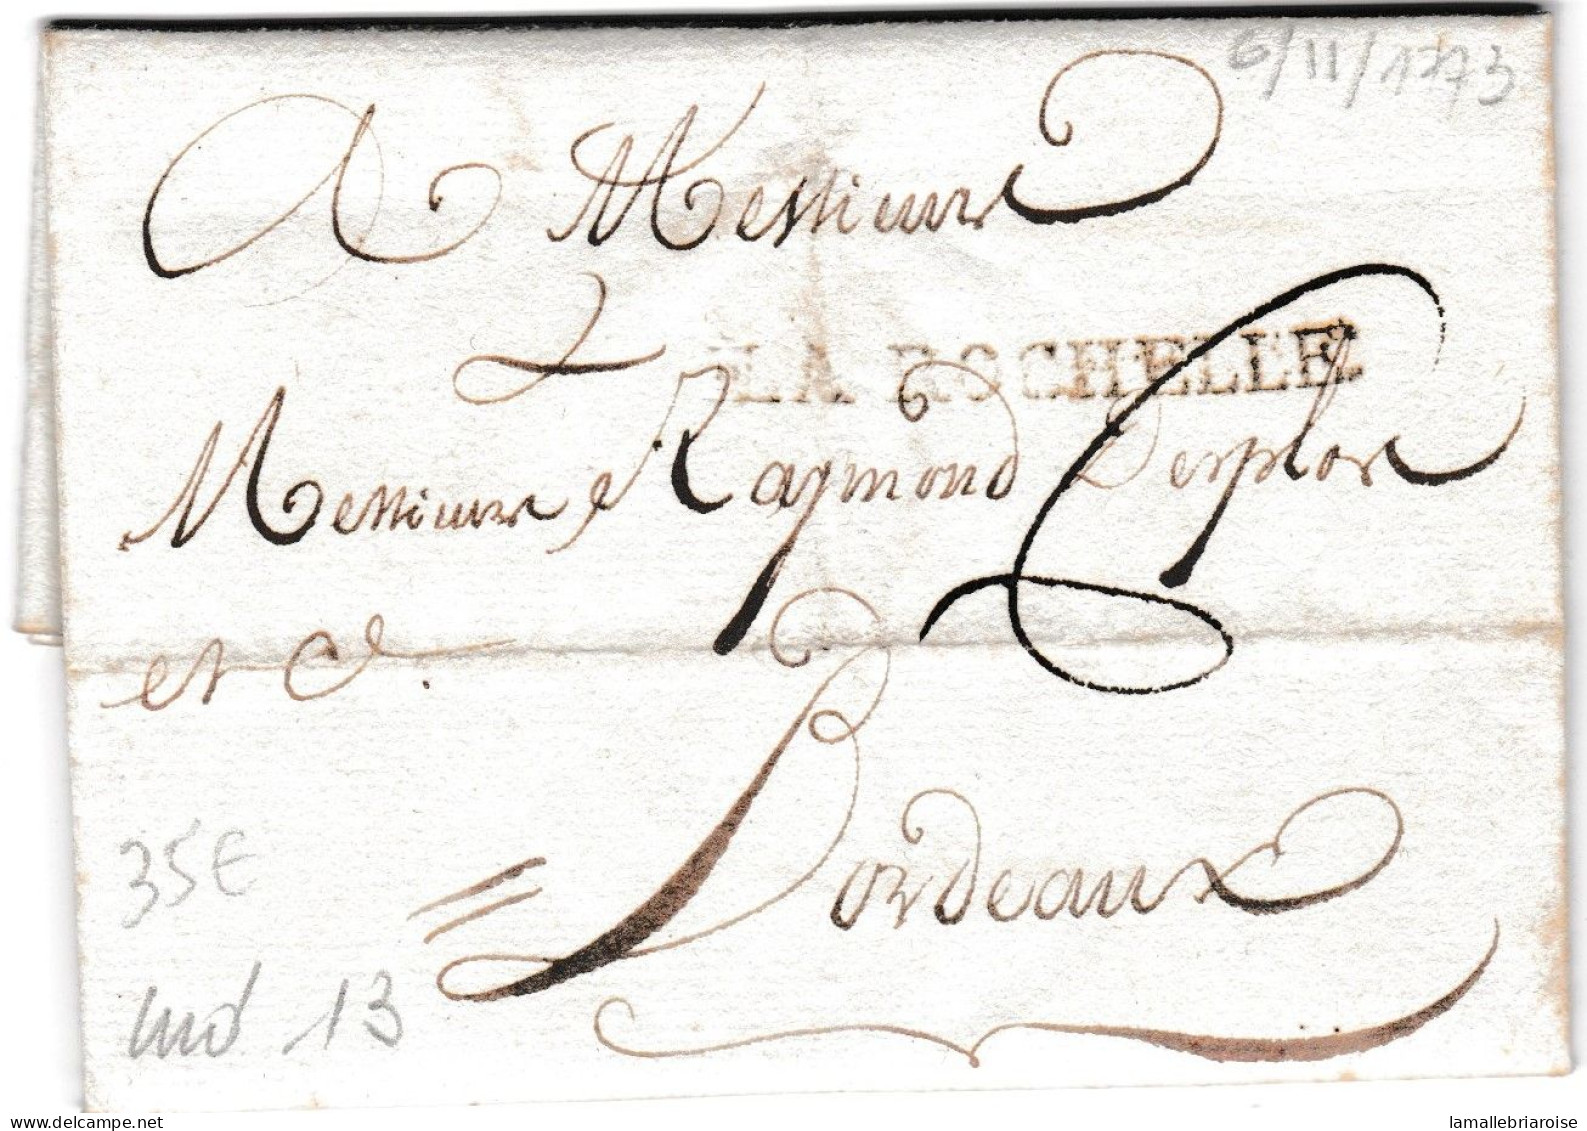 6/11/1773
A Messieurs
LA ROCHELLE
Messieurs Raymond Desplas
et Ce.
Bordeaux
35€
ind 13
www.delcampe.net
lamallebriaroise